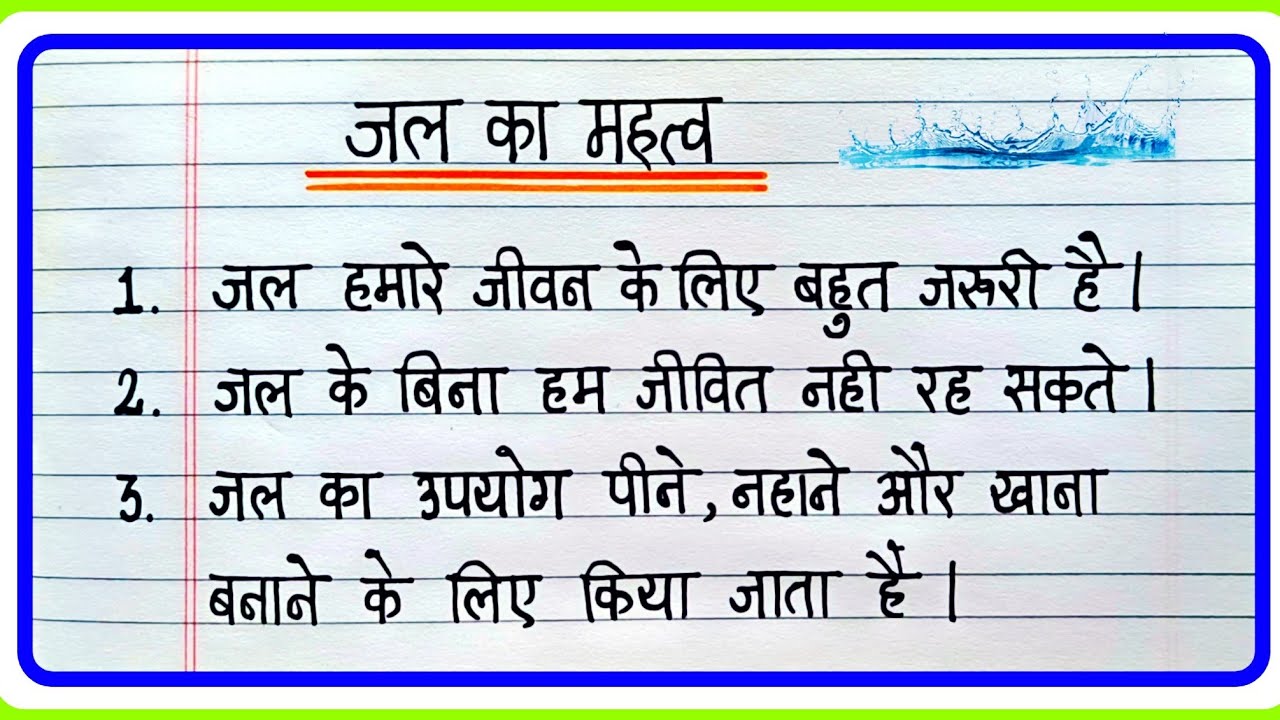 जल का महत्व
1. जल हमारे जीवन के लिए बहुत जरुरी है।
2. जल के बिना हम जीवित नही रह सकते।
3. जल का उपयोग पीने, नहाने और खाना
बनाने के लिए किया जाता हैं।